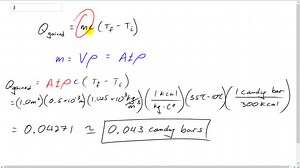 3
Q gained = mc (T_f - T_i)
m = Vρ = Atρ
Q gained = Atρ c (T_f - T_i)
= (1.0m²)(0.5×10⁻³m)(1.025×10³ kg/m³)(1 kcal / kg·C°)(35℃-10℃)(1 candy bar / 300 kcal)
= 0.04271 ≃ 0.043 candy bars